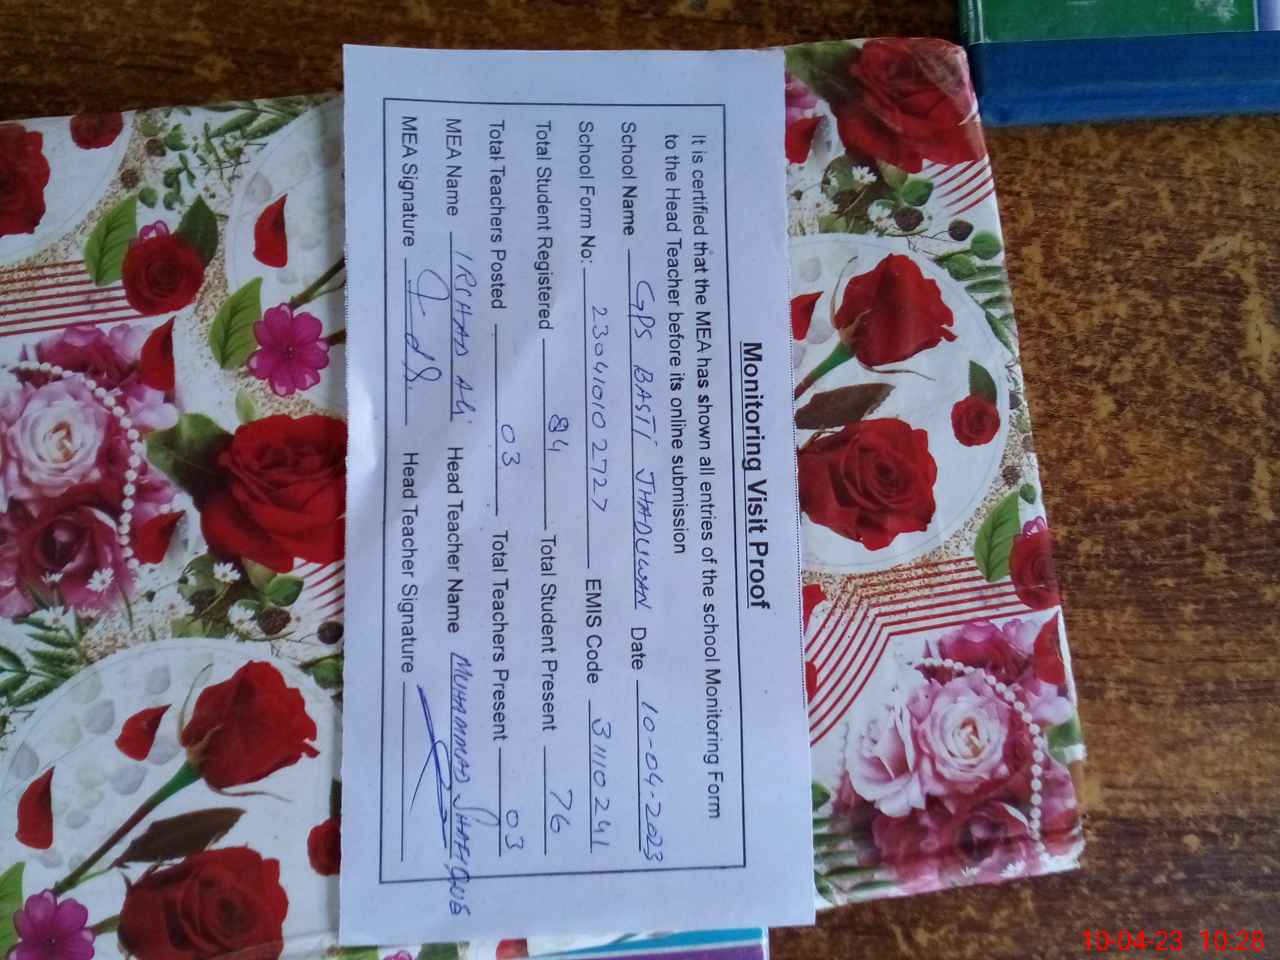 Monitoring Visit Proof
It is certified that the MEA has shown all entries of the school Monitoring Form
to the Head Teacher before its online submission
School Name GPS BASTI JHADUWAN Date 10-04-2023
School Form No: 23041010 2727 EMIS Code 31110241
Total Student Registered 84 Total Student Present 76
Total Teachers Posted 03 Total Teachers Present 03
MEA Name IRSHAD ALI Head Teacher Name MUHAMMAD SHAFIQUE
MEA Signature Head Teacher Signature
10-04-23 10:28